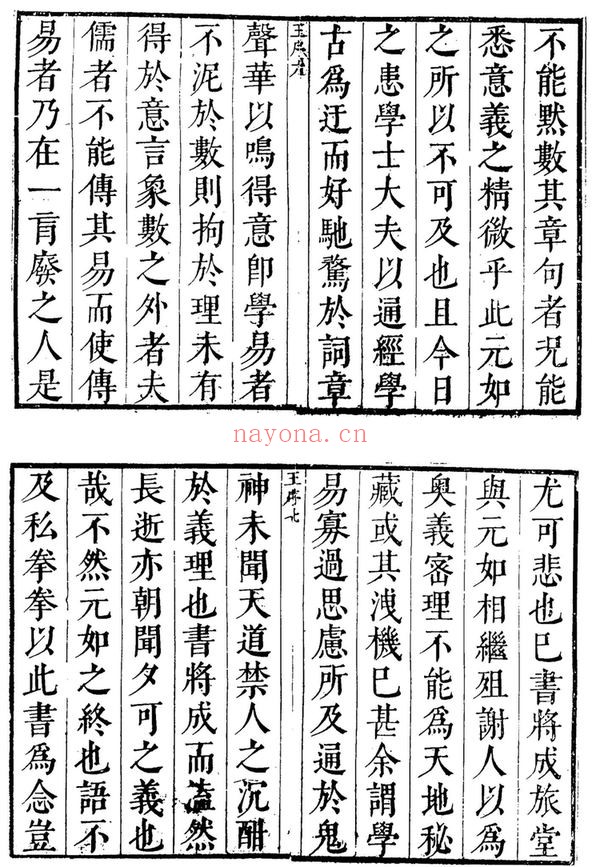 不能默數其章句者况能
悉意義之精微乎此元如
之所以不可及也且今日
之患學士大夫以通經學
古爲迂而好馳騖於詞章
聲華以鳴得意卽學易者
不泥於數則拘於理未有
得於意言象數之外者夫
儒者不能傳其易而使傳
易者乃在一盲廢之人是
nayona.cn
尤可悲也已書將成旅堂
與元如相繼殂謝人以爲
奥義審理不能爲天地秘
藏或其洩機已甚余謂學
易寡過思慮所及通於鬼
神未聞天道禁人之沉酣
於義理也書將成而溘然
長逝亦朝聞夕可之義也
哉不然元如之終也語不
及私拳拳以此書爲念豈